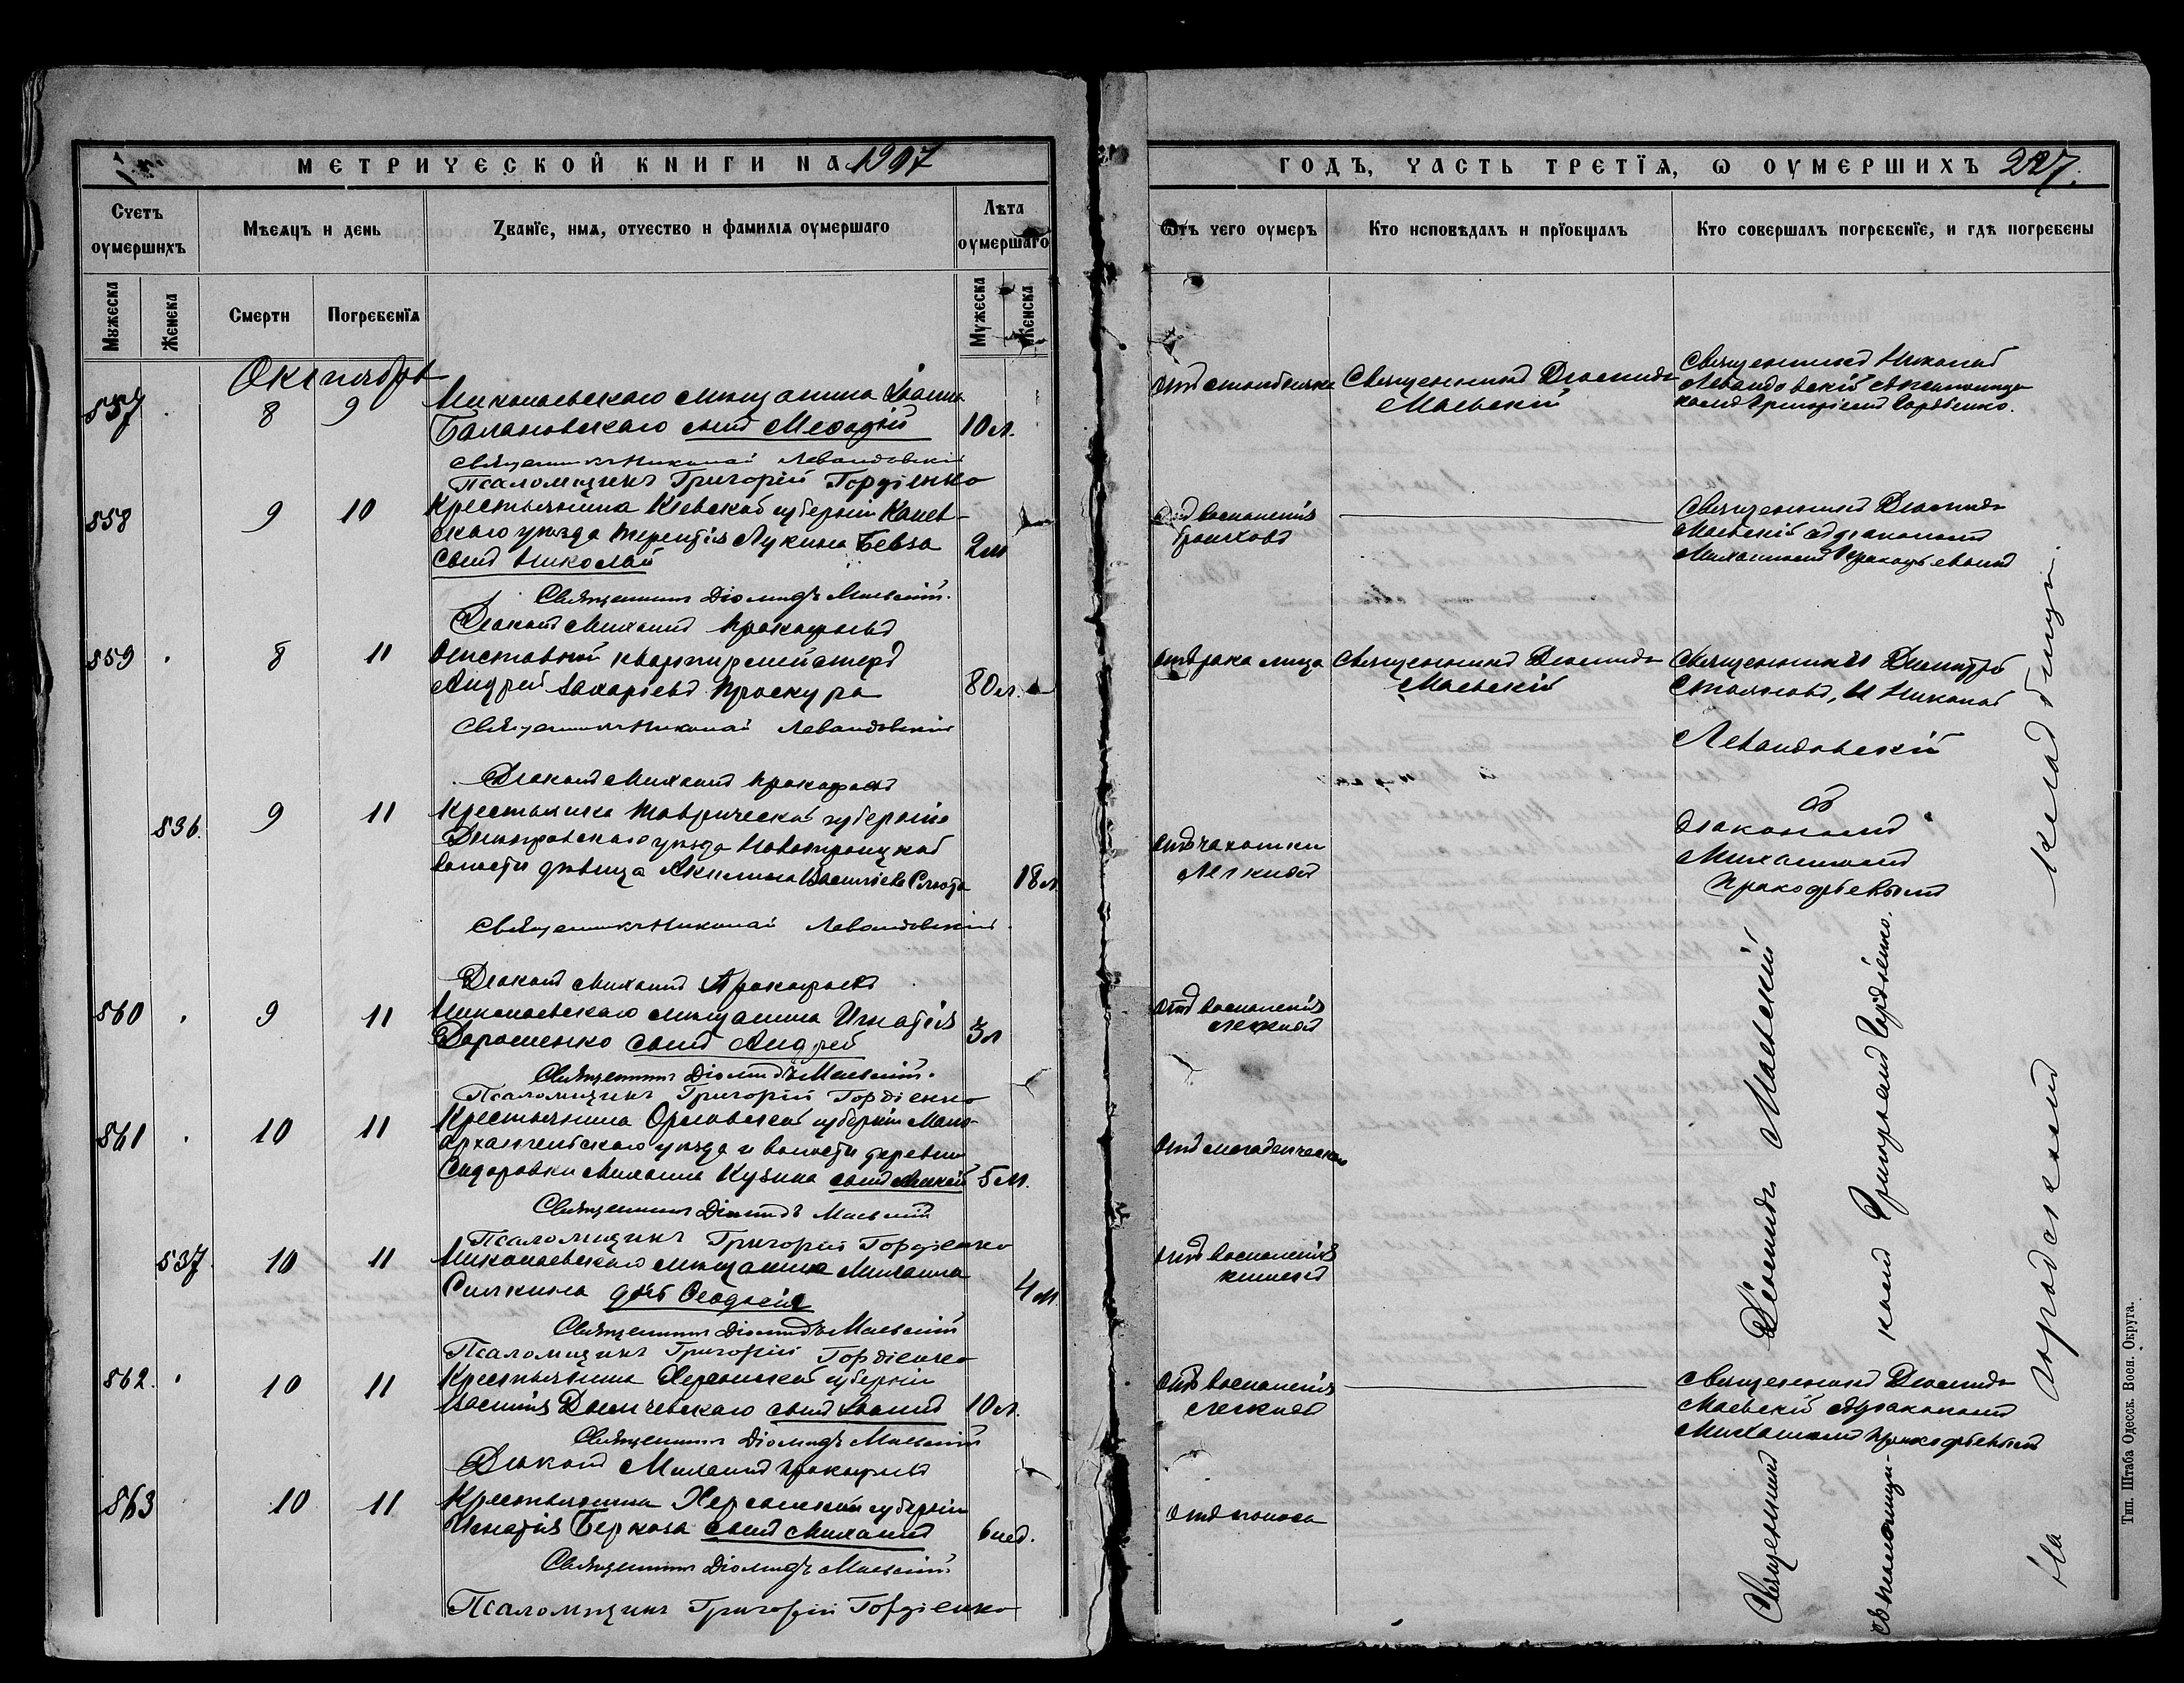 МЕТРИЧЕСКОЙ КНИГИ НА 1907
Счетъ оумершихъ
Мѣсяцъ и день
Званїе, имя, отчество и фамилїя оумершаго
Лѣта оумершаго
Мужеска
Женска
Смерти
Погребенїя
Мужеска
Женска
Октября
857
8
9
Николаевскаго мѣщанина Іоанна
Балановскаго сынъ Меѳодій
10 л.
Священникъ Николай Левандовскій
Псаломщикъ Григорій Гордіенко
858
9
10
Крестьянина Кіевской губерніи Канев-
скаго уѣзда Терентія Лукина Бевза
сынъ Николай
2 м
Священникъ Діомидъ Маевскій.
Діаконъ Михаилъ Прокофьевъ
859
8
11
Отставной квартирмейстеръ
Андрей Захаріевъ Проскура
80 л.
Священникъ Николай Левандовскій
Діаконъ Михаилъ Прокофьевъ
836.
9
11
Крестьянка Таврической губерніи
Днѣпровскаго уѣзда Новотроицкой
волости дѣвица Акилина Василіева
18 л
Священникъ Николай Левандовскій
Діаконъ Михаилъ Прокофьевъ
860
9
11
Николаевскаго мѣщанина Игнатія
Дорошенко сынъ Андрей
3 л
Священникъ Діомидъ Маевскій.
Псаломщикъ Григорій Гордіенко
861
10
11
Крестьянина Орловской губерніи Мало-
архангельскаго уѣзда и волости деревни
Сидоровки Михаила Кузина сынъ
5 м.
Священникъ Діомидъ Маевскій
Псаломщикъ Григорій Гордіенко
837
10
11
Николаевскаго мѣщанина Михаила
Силкина дочь Ѳеодосія
4 м
Священникъ Діомидъ Маевскій
Псаломщикъ Григорій Гордіенко
862.
10
11
Крестьянина Херсонской губерніи
Василія сынъ Іоаннъ
10 л.
Священникъ Діомидъ Маевскій
Діаконъ Михаилъ Прокофьевъ
863
10
11
Крестьянина Херсонской губерніи
Игнатія Беркова сынъ Михаилъ
6 нед.
Священникъ Діомидъ Маевскій
Псаломщикъ Григорій Гордіенко
ГОДЪ, ЧАСТЬ ТРЕТЇЯ, Ѡ ОУМЕРШИХЪ 227.
Ѿтъ чего оумеръ
Кто исповѣдалъ и прїобщалъ
Кто совершалъ погребенїе, и гдѣ погребены
Отъ столбняка
Священникъ Діомидъ
Маевскій
Священникъ Николай
Левандовскій съ псаломщи-
комъ Григоріемъ Гордіенко.
Отъ воспаленія
бронховъ
Священникъ Діомидъ
Маевскій съ діакономъ
Михаиломъ Прокофьевымъ
Отъ рака лица
Священникъ Діомидъ
Маевскій
Священники Димитрій
Стоянов, и Николай
Левандовскій
съ
діакономъ
Михаиломъ
Прокофьевымъ
Отъ чахотки
легкихъ
Отъ воспаленія
легкихъ
Отъ младенческой
Отъ воспаленія
кишекъ
Отъ воспаленія
легкихъ
Священникъ Діомидъ
Маевскій съ діакономъ
Михаиломъ Прокофьевымъ
Отъ поноса
Священникъ Діомидъ Маевскій
съ псаломщи-комъ Григоріемъ Гордіенко.
На городскомъ кладбищѣ
Тип. Штаба Одесск. Воен. Округа.